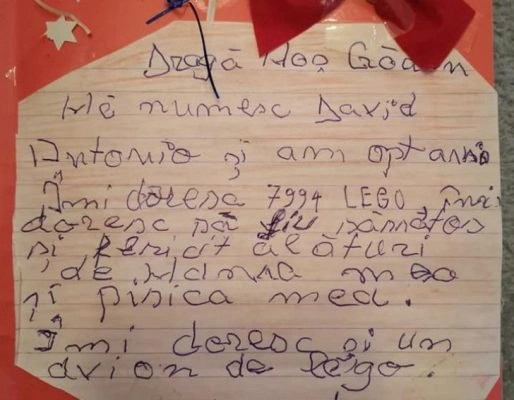 Dragă Moș Gõdun
Mé numesc David
Antonio și am opt ani
Îmi doresc 7994 LEGO, îmi
doresc să fiu sănătos
și fericit alături
de Mamna mea
și pisica mea.
Îmi doresc și un
avion de lego.